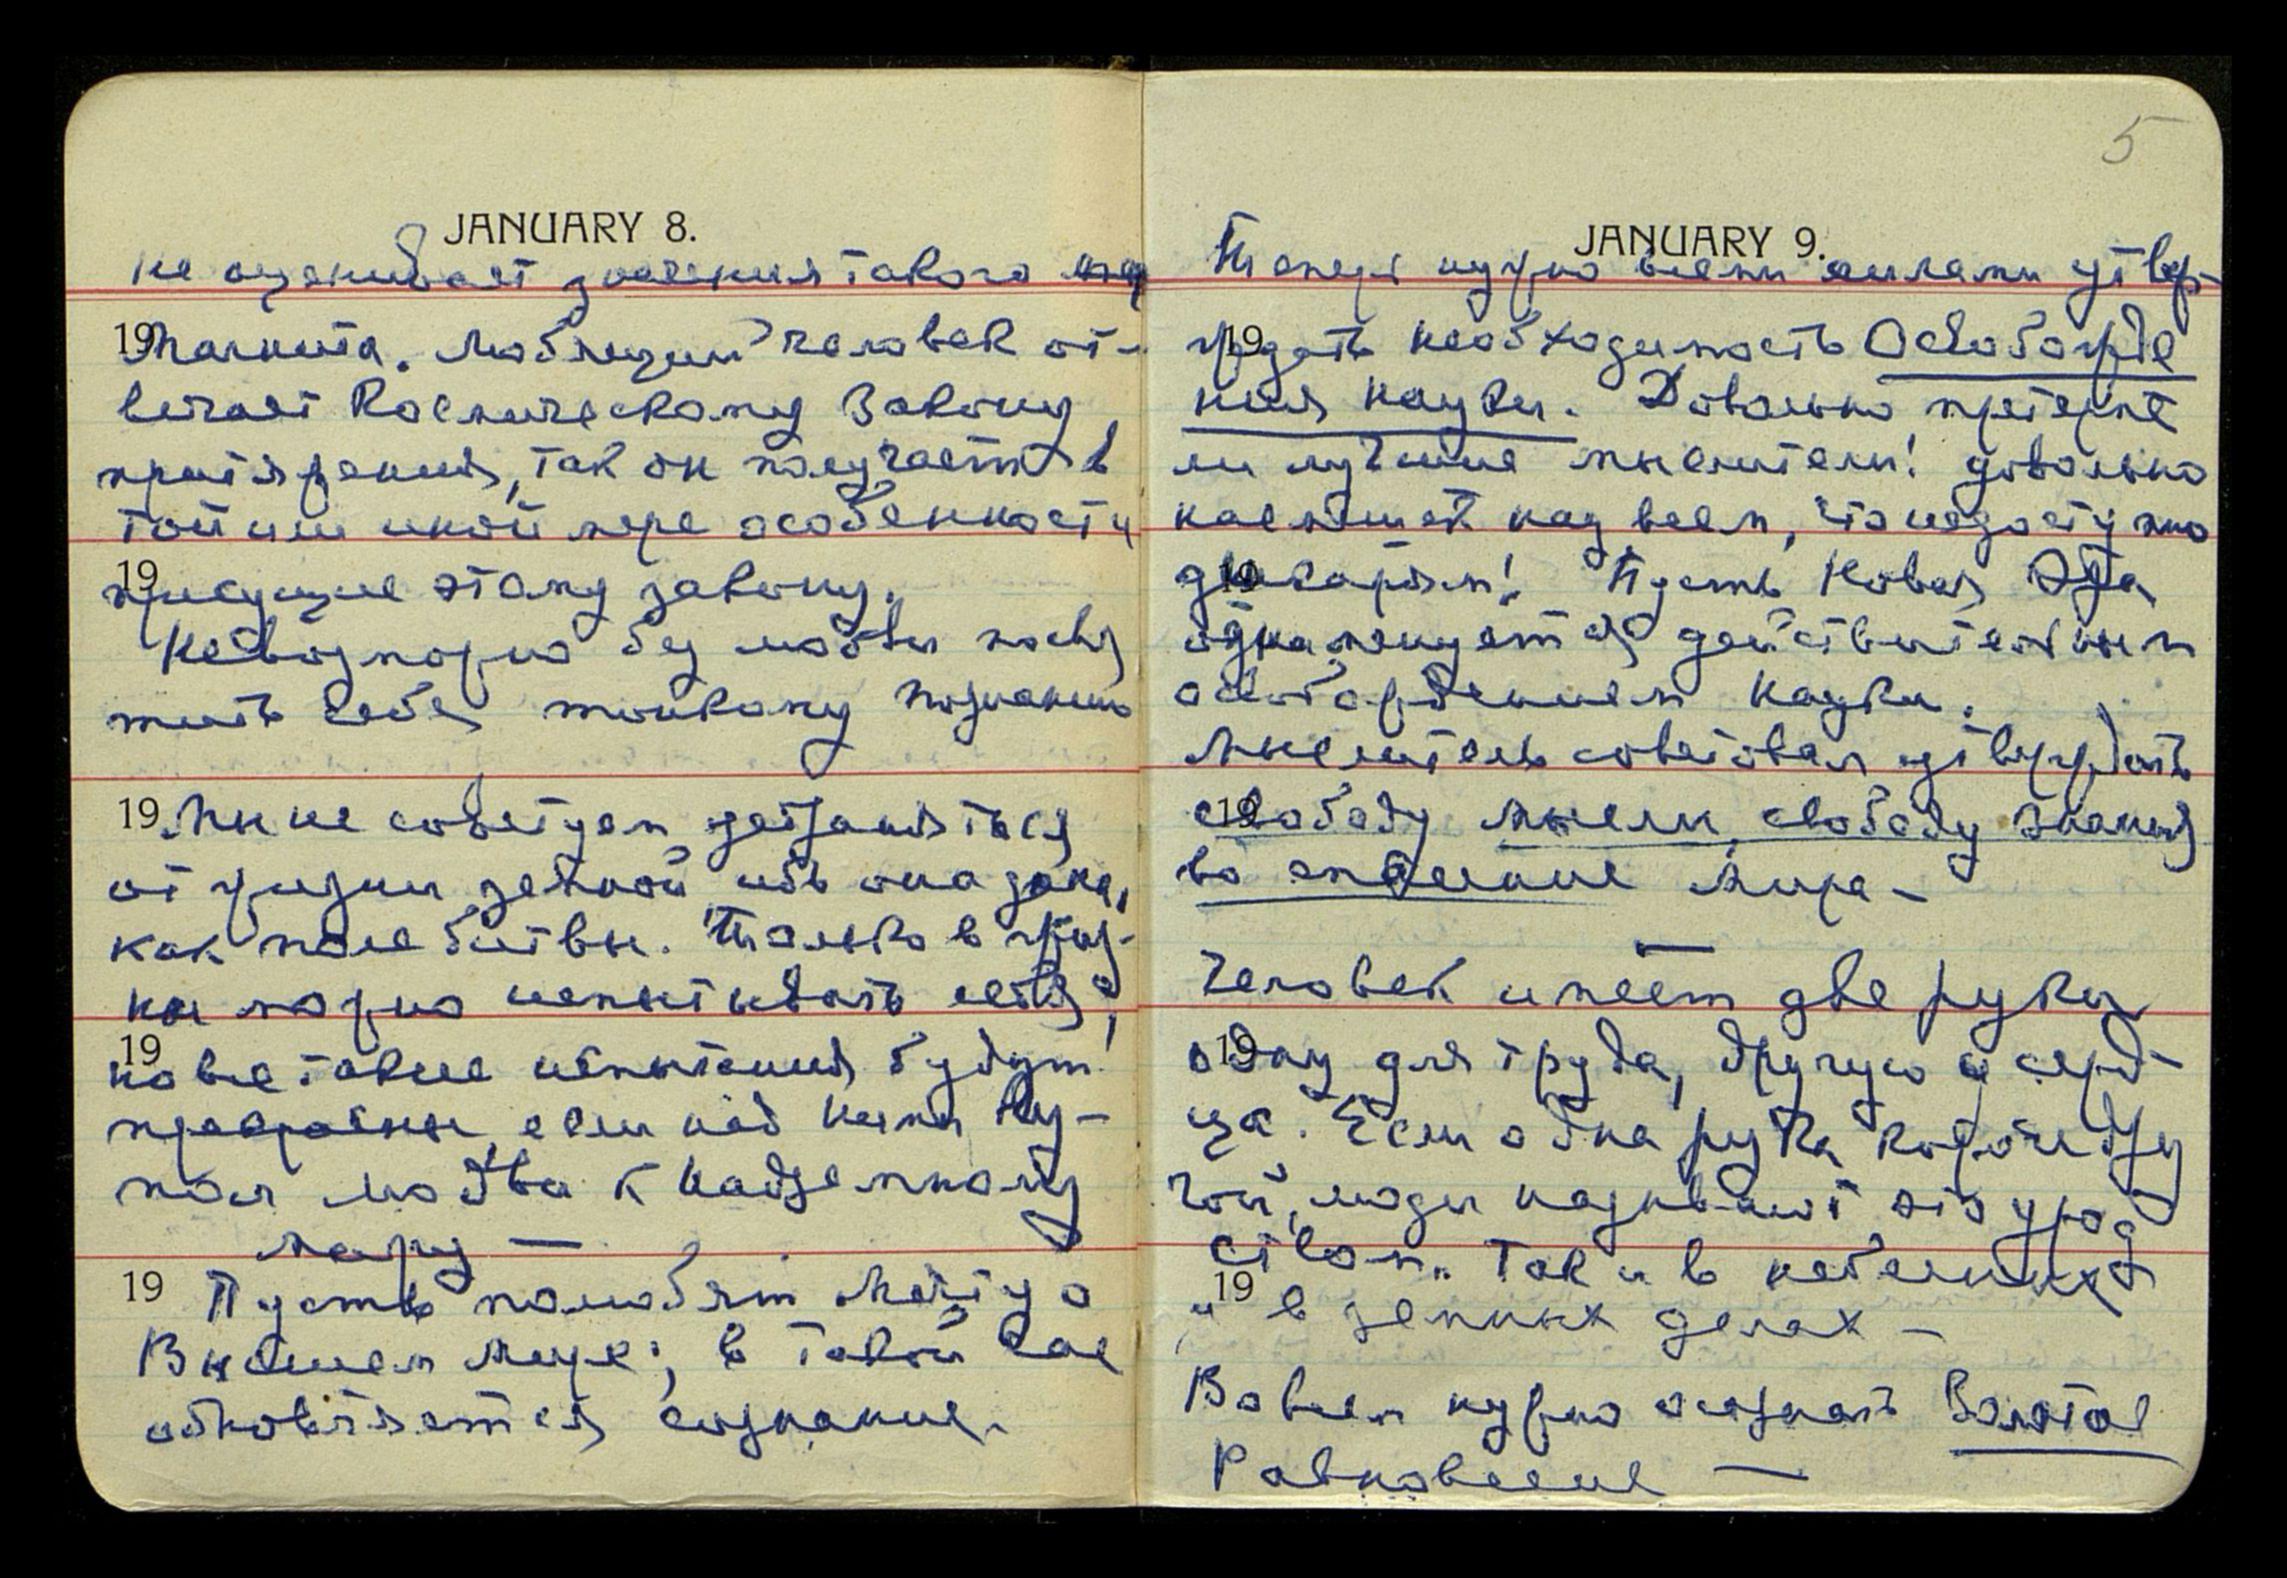 JANUARY 8.
не оценивает значения такого маг
19
нанита. Любящий человек от-
вечает Космическому Закону
притяжения, так он получает в
той или иной мере особенности
19
присущие этому закону.
Невозможно без любви посвя
тить себя тонкому познанию
19 Мы не советуем устраняться
от жизни земной, ибо она дана,
как поле битвы. Только в жиз-
ни можно испытывать себя,
19
но все такие испытания будут
прекрасны, если над ними ку-
пол любви к Надземному
Миру —
19 Пусть полюбят Мечту о
Высшем Мире; в такой час
обновляется сознание.
5
JANUARY 9.
Теперь нужно всеми силами утвер-
19
ждать необходимость Освобожде
ния науки. Довольно претерпе
ли лучшие мыслители! довольно
насмешек над всем, что недоступно
19
дикарям! Пусть Новая Эра
ознаменуется действительным
освобождением науки.
Мыслитель советовал утверждать
19
свободу мысли, свободу знания
во спасение Мира —
Человек имеет две руки
19
одну для труда, другую у серд-
ца. Если одна рука короче дру
гой, люди называют это урод
ством. Так и в небесных
19
и в земных делах —
Во всем нужно осознать Золотое
Равновесие —